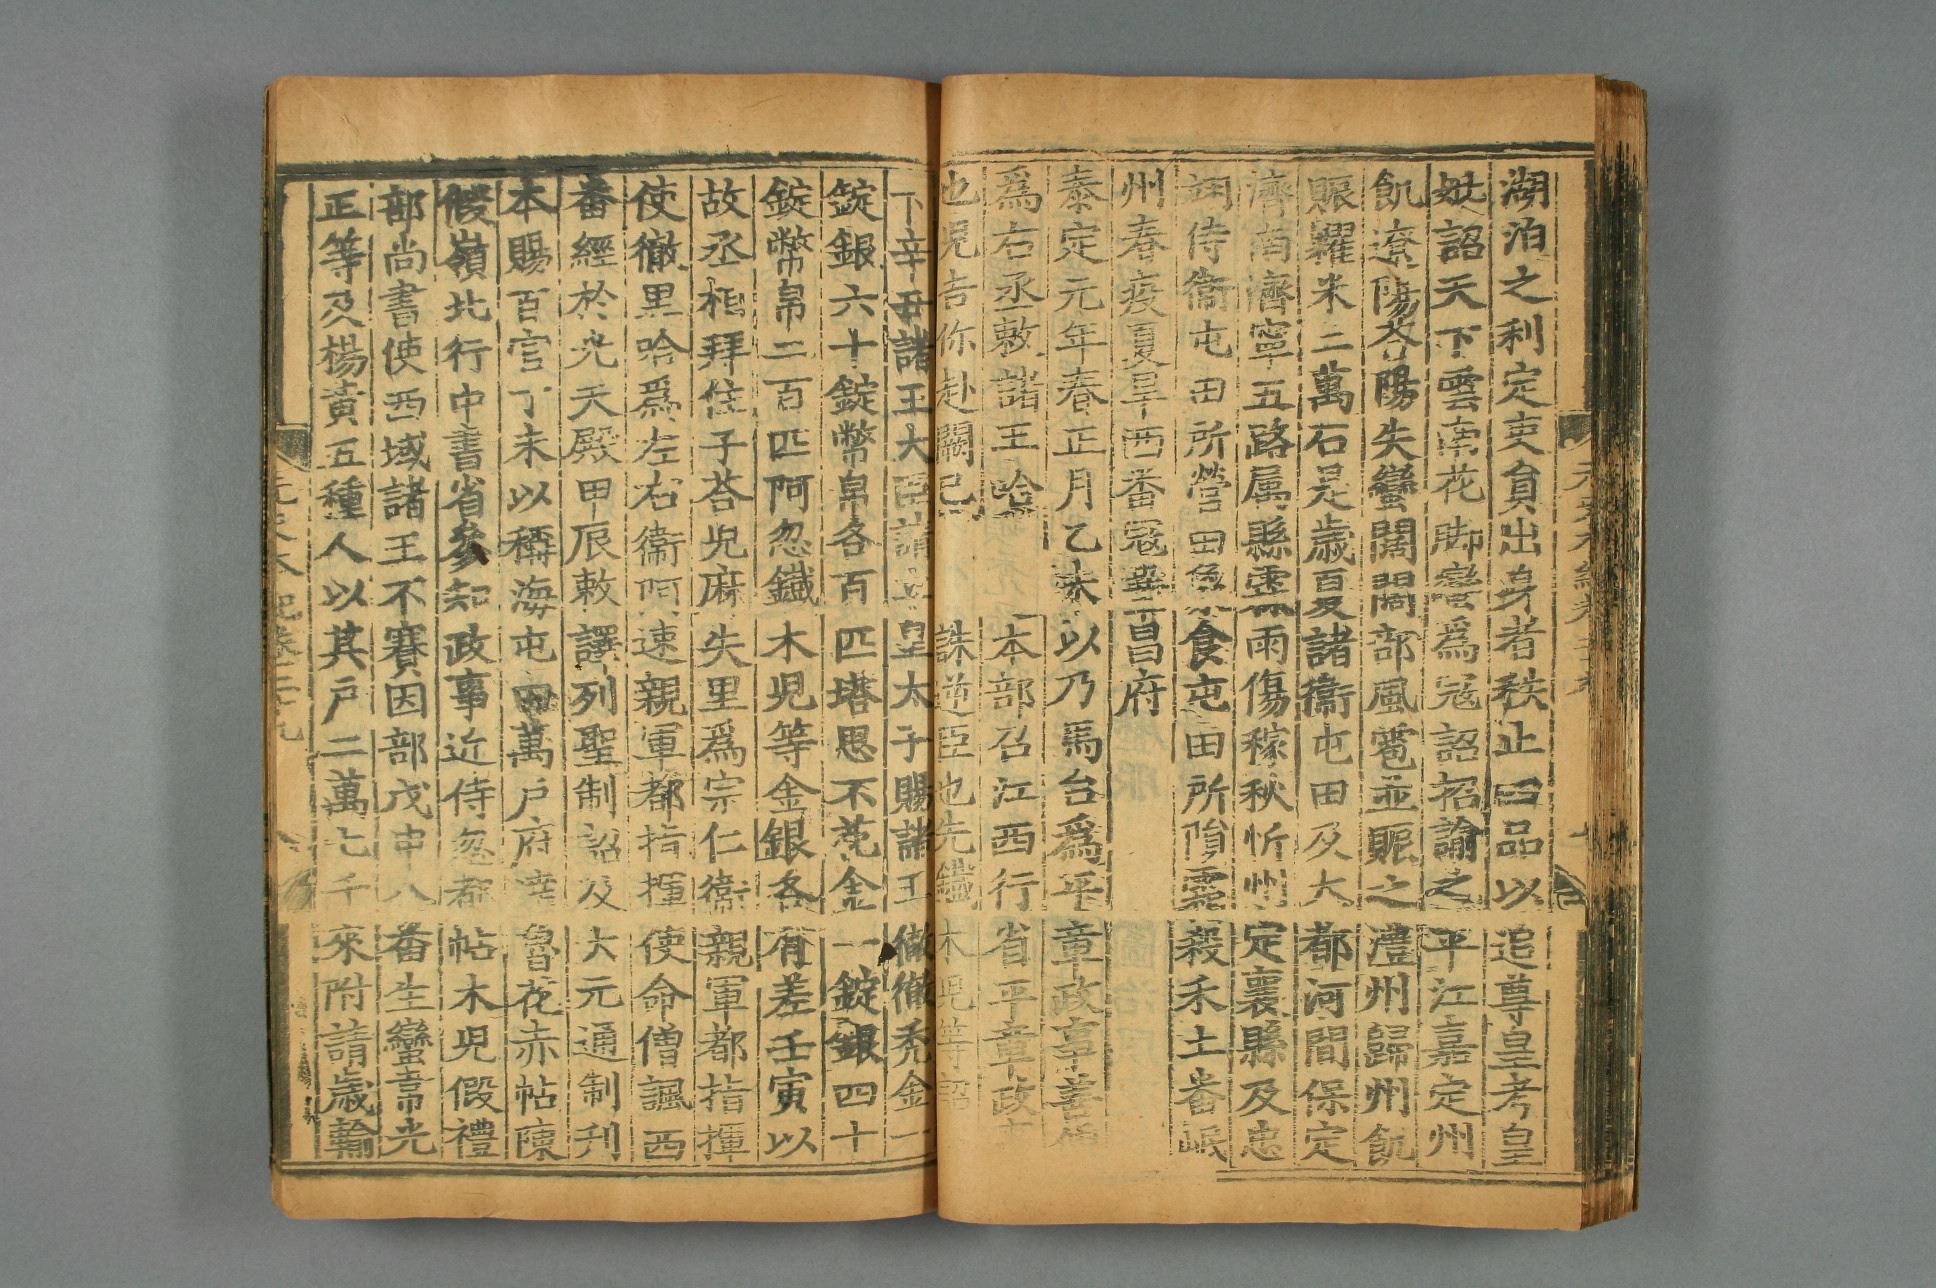 湖泊之利定吏員出身者秩止四品以追尊皇考皇
妣詔天下雲南花脚蠻為冦詔招諭之平江嘉定州
飢遼陽荅陽失蠻闊闊部風雹並賑之澧州歸州飢
賑糶米二萬石是歳夏諸衞屯田及大都河間保定
濟南濟寧五路属縣霖雨傷稼秋忻州定襄縣及忠
翊侍衞屯田所營田象食屯田所隕霜殺禾土番岷
州春疫夏旱西番冦鞏昌府
泰定元年春正月乙未以乃馬台爲平章政事善僧
爲右丞敕諸王哈 本部召江西行省平章政
也兒吉你赴闕己 誅逆臣也先鐵木兒等詔
下辛丑諸王大臣請立皇太子賜諸王徹徹秃金一
錠銀六十錠幣帛各百匹塔思不花金一錠銀四十
錠幣帛二百匹阿忽鐵木兒等金銀各有差壬寅以
故丞相拜住子荅兒麻失里爲宗仁衞親軍都指揮
使徹里哈爲左右衞阿速親軍都指揮使命僧諷西
番經於光天殿甲辰敕譯列聖制詔及大元通制刋
本賜百官丁未以稱海屯田萬戶府達魯花赤帖陳
假嶺北行中書省參知政事近侍忽都帖木兒假禮
部尚書使西域諸王不賽因部戊申八番生蠻韋光
正等及楊黄五種人以其戶二萬七千來附請歳輸
元史本紀卷二十九